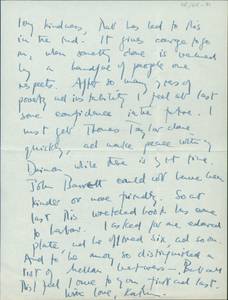 your kindness, that has led to this
in the end. It gives courage to go
on, when something done is valued
by a handful of people one
respects. After so many years of
poverty and invisibility I feel at last
some confidence in the future. I
must get Thomas Taylor done
quickly, and make peace with my
Daimon while there is yet time.
John Barrett could not have been
kinder or more friendly. So at
last this wretched book has come
to harbour. I asked for one coloured
plate, and be offered six, and so on.
And to be among so distinguished a
list of Mellon lectures — But all
this I feel I owe to you first and last.
With love,